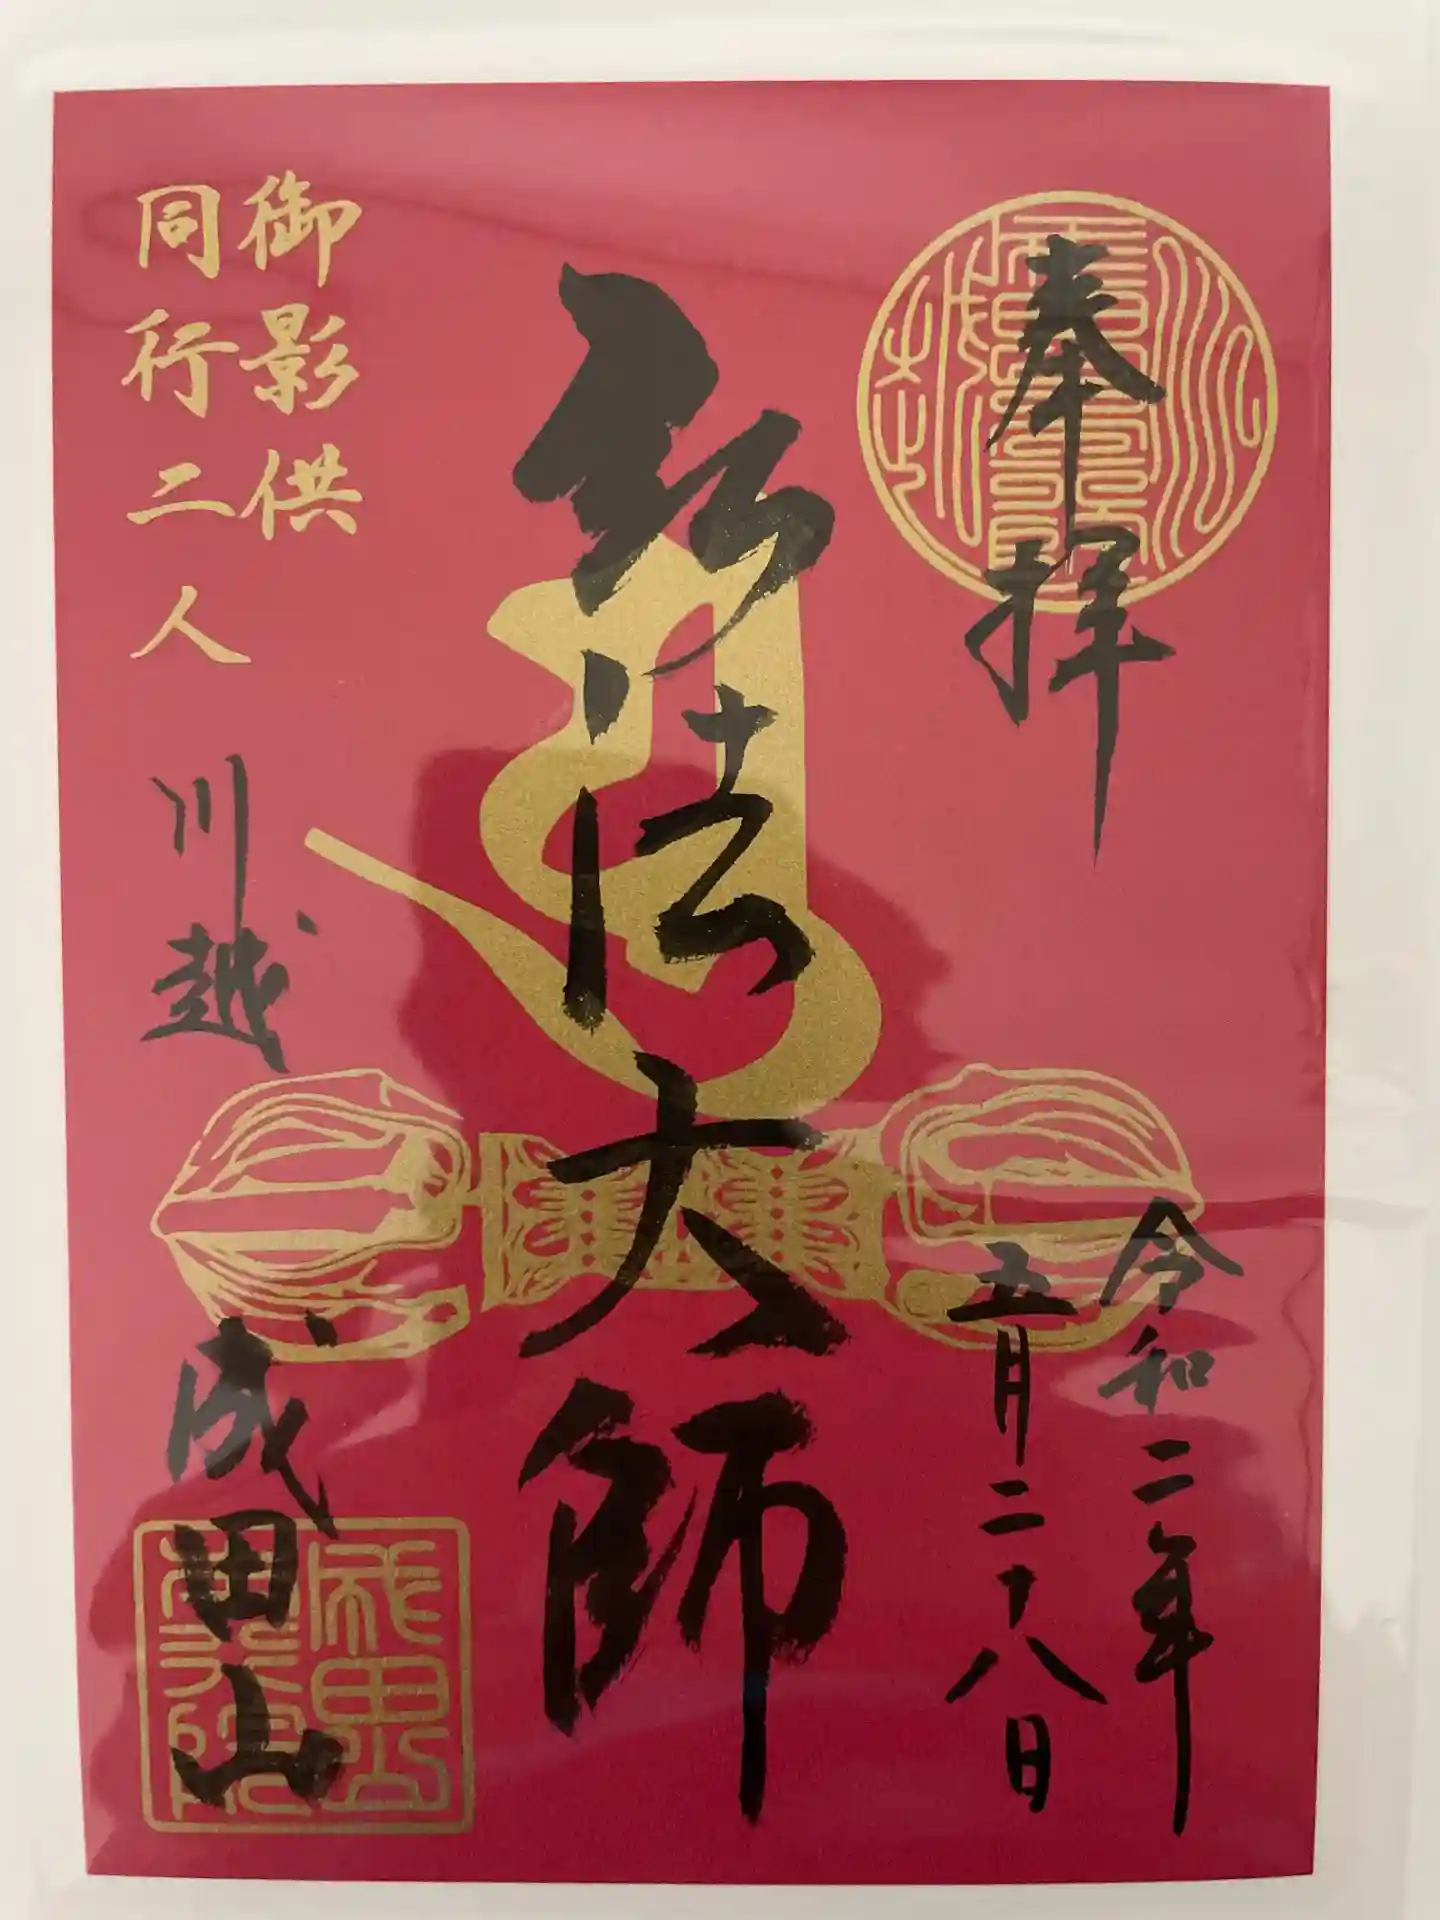 奉拝
令和二年
五月二十八日
弘法大師
御影供
同行二人
川越
成田山
成田山